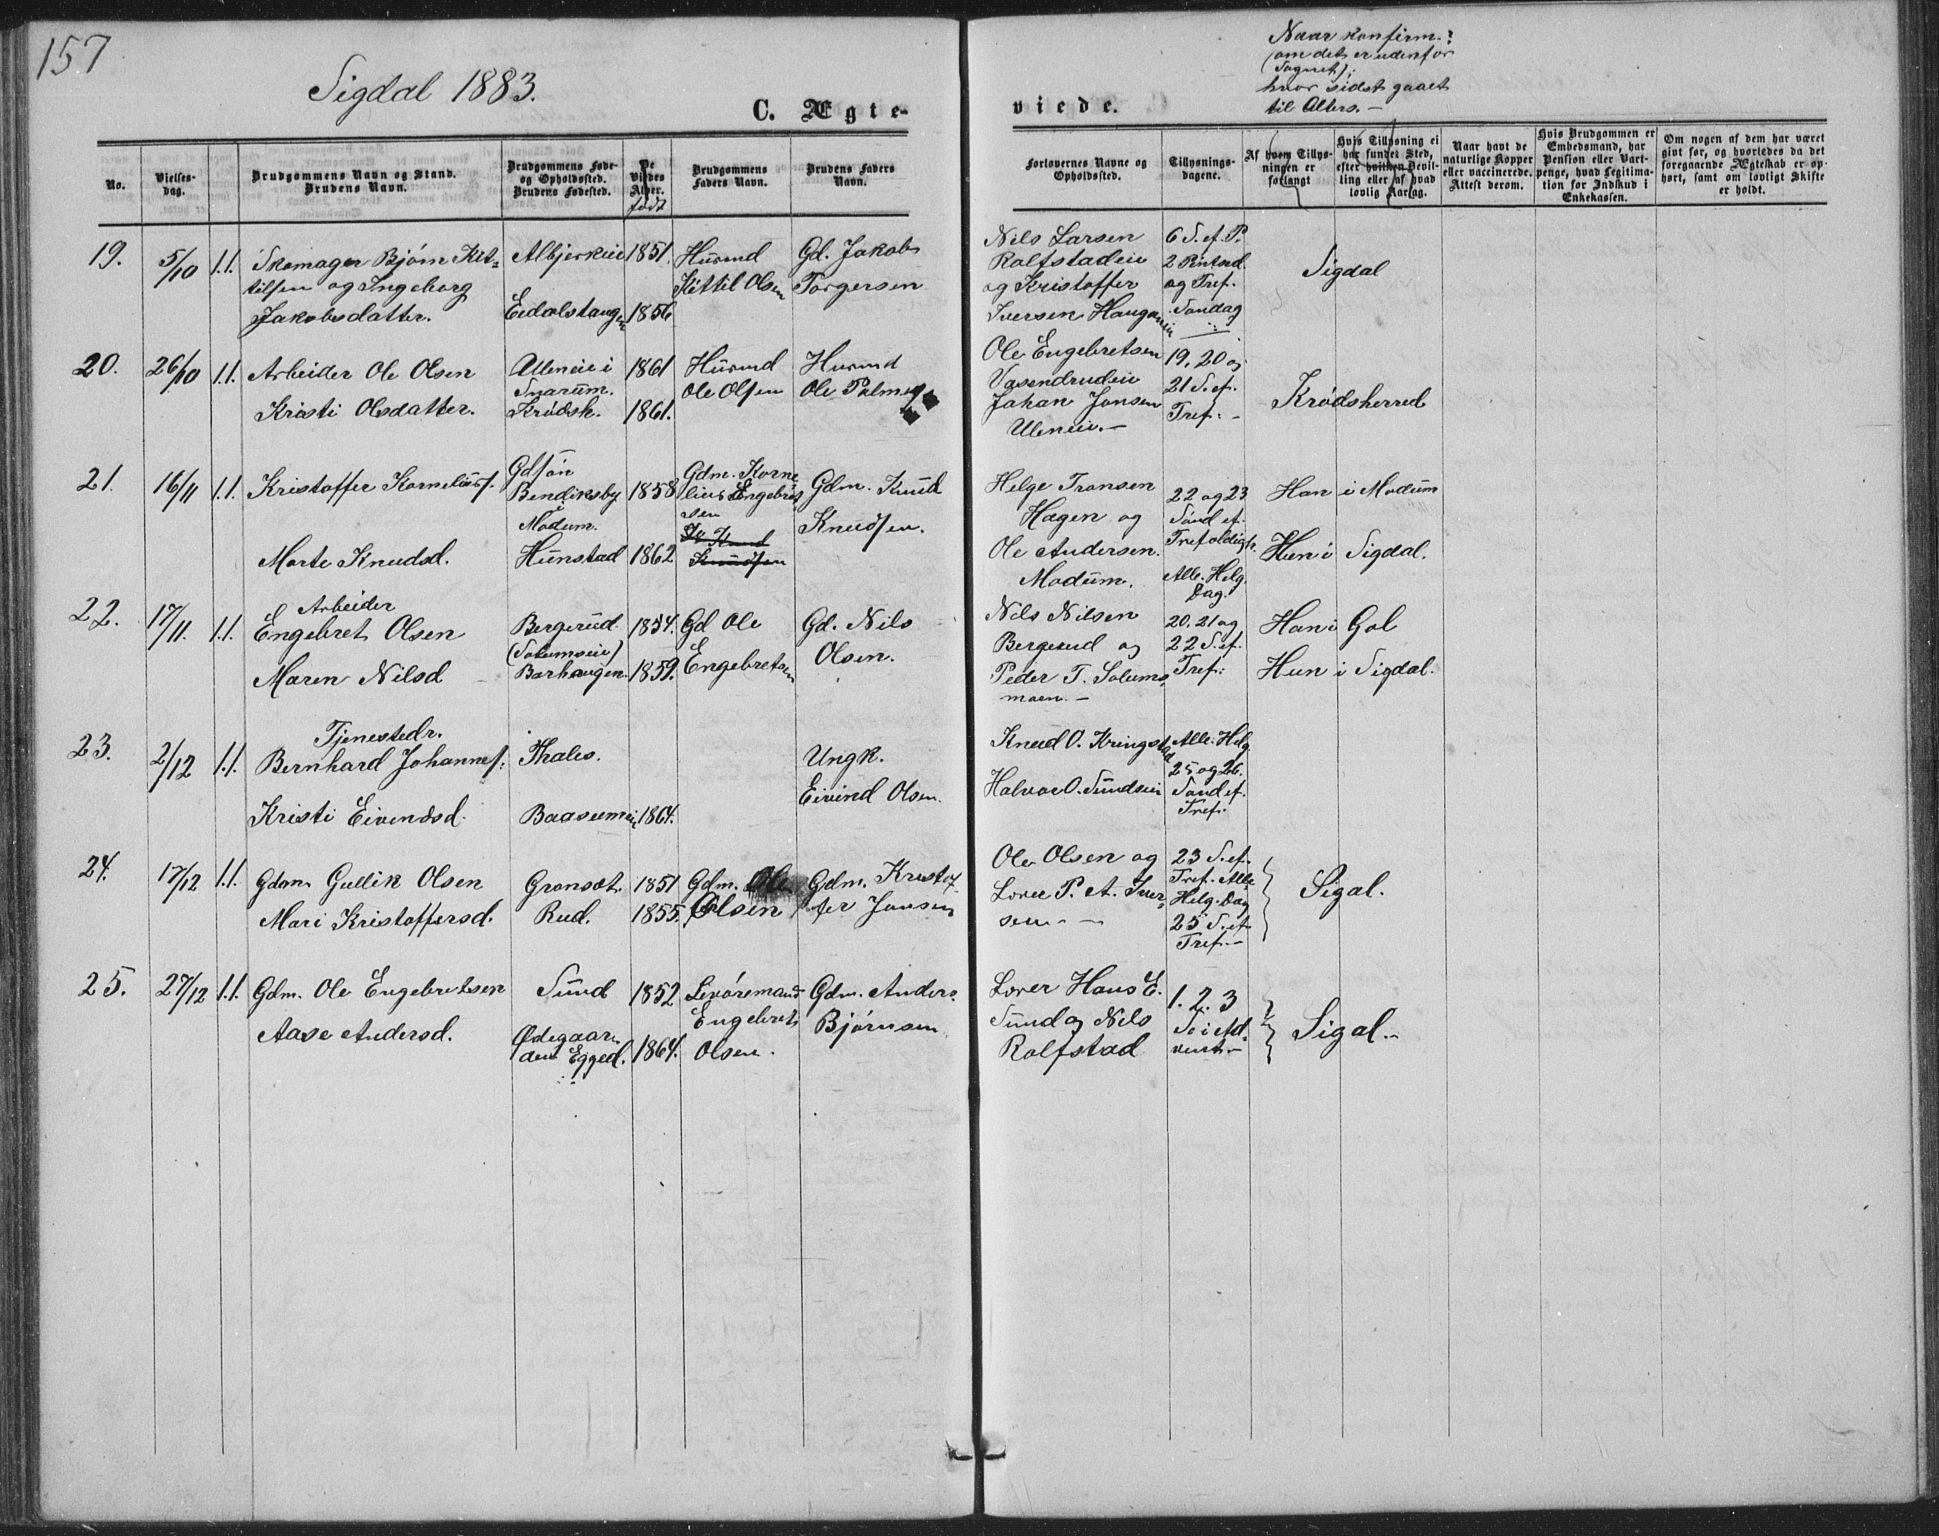 157
Sigdal 1883.
C. Ægte-
viede.
Naar konfirm.?
(om det er udenfor
Sognet);
hvor sidst gaaet
til Alters. —
No.
Vielses-
dag.
Brudgommens Navn og Stand.
Brudens Navn.
Brudgommens Føde-
og Opholdssted.
Brudens Fødested.
De
Viedes
Alder.
født
Brudgommens
Faders Navn.
Brudens Faders
Navn.
Forlovernes Navne og
Opholdssted.
Tillysnings-
dagene.
Af hvem Tillys-
ningen er
forlangt
Hvis Tillysning ei
har fundet Sted,
efter hvilken Bevil-
ling eller af hvad
lovlig Aarsag.
Naar havt de
naturlige Kopper
eller vaccinerede.
Attest derom.
Hvis Brudgommen er
Embedsmand, har
Pension eller Vart-
penge, hvad Legitima-
tion for Indskud i
Enkekassen.
Om nogen af dem har været
gift før, og hvorledes da det
foregaaende Ægteskab er op-
hørt, samt om lovligt Skifte
er holdt.
19.
5/10
1.1.
Skomager Bjørn Kit-
tilsen og Ingeborg
Jakobsdatter.
Albjerkeie
Eidalstangen
1851.
1856
Husmd
Kittil Olsen
Gd. Jakob
Torgersen
Nils Larsen
Rolfstadeie
og Kristoffer
Iversen Haugeneie
6 S. ef. P.
2 Pintsed.
og Tref.
Søndag
Sigdal
20.
26/10
1.1.
Arbeider Ole Olsen
Kristi Olsdatter.
Ulleneie i
Snarum.
Krødsh.
1861
1861.
Husmd
Ole Olsen
Husmd
Ole Palme
Ole Engebretsen
Vasendrudeie
Johan Jonsen
Uleneie. —
19, 20 og
21 S. ef.
Tref. —
Krødsherred
21.
16/11
1.1.
Kristoffer Korneliuss.
Marte Knudsd.
Gdsøn
Bendiksby
i
Modum.
Hunstad
1858
1862
Gdm. Korne
lius Engebret
sen
Knud
Knudsen
Gdm. Knud
Knudsen.
Helge Tronsen
Hagen og
Ole Andersen
Modum.
22 og 23
Sønd ef.
Trefoldigh.
Alle. Helg.
Dag.
Han i Modum
Hun i Sigdal.
22.
17/11.
1.1.
Arbeider
Engebret Olsen
Maren Nilsd
Bergerud.
(Solumseie)
Barhaugen.
1854.
1859.
Gd Ole
Engebretsen
Gd. Nils
Olsen.
Nils Nilsen
Bergerud og
Peder T. Solums
moen. —
20. 21 og
22 S. ef.
Tref:
Han i Gol
Hun i Sigdal.
23.
2/12
1.1.
Tjenestedr.
Bernhard Johannes.
Kristi Eivendsd.
Thales.
Baasumeie
1864.
Ungk.
Eivind Olsen.
Knud O. Kringstad
Halvor O. Sundseie
Alle. Helg.
25 og 26.
Sønd ef.
Tref.
24.
17/12
1.1.
Gdm Gullik Olsen
Mari Kristoffersd.
Grønsæt.
Rud.
1851
1855.
Gdm. Ole
Olsen
Gdm. Kristof
fer Jonsen
Ole Olsen og
Lærer P. A. Iver-
sen — —
23 S. ef.
Tref. Alle
Helg. Dag
25 S. ef
Tref. —
Sigal.
25.
27/12
1.1.
Gdm. Ole Engebretsen
Aase Andersd.
Sund
Ødegaar
den Egged.
1852
1864.
Engebret
Olsen.
Gdm. Anders
Bjørnsen
Lærer Hans E.
Sund og Nils
Rolfstad
1. 2. 3
S. i Ad
vent —
Sigal. —